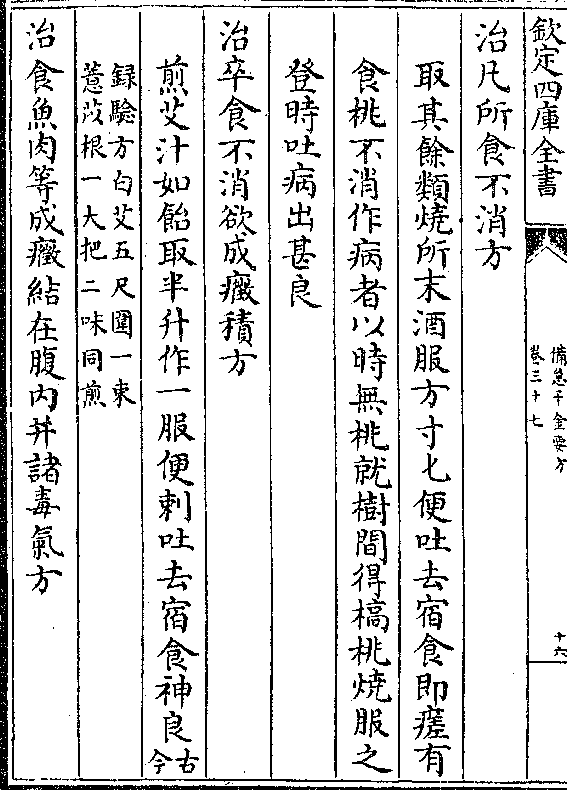 欽定四庫全書
備急千金要方
卷三十七
十六
治凡所食不消方
取其餘類燒所末酒服方寸匕便吐去宿食即瘥有
食桃不消作病者以時無桃就樹間得槁桃燒服之
登時吐病出甚良
治卒食不消欲成癥積方
煎艾汁如飴取半升作一服便剌吐去宿食神良古今
録驗方白艾五尺圍一束
薏苡根一大把二味同煎
治食魚肉等成癥結在腹内并諸毒氣方